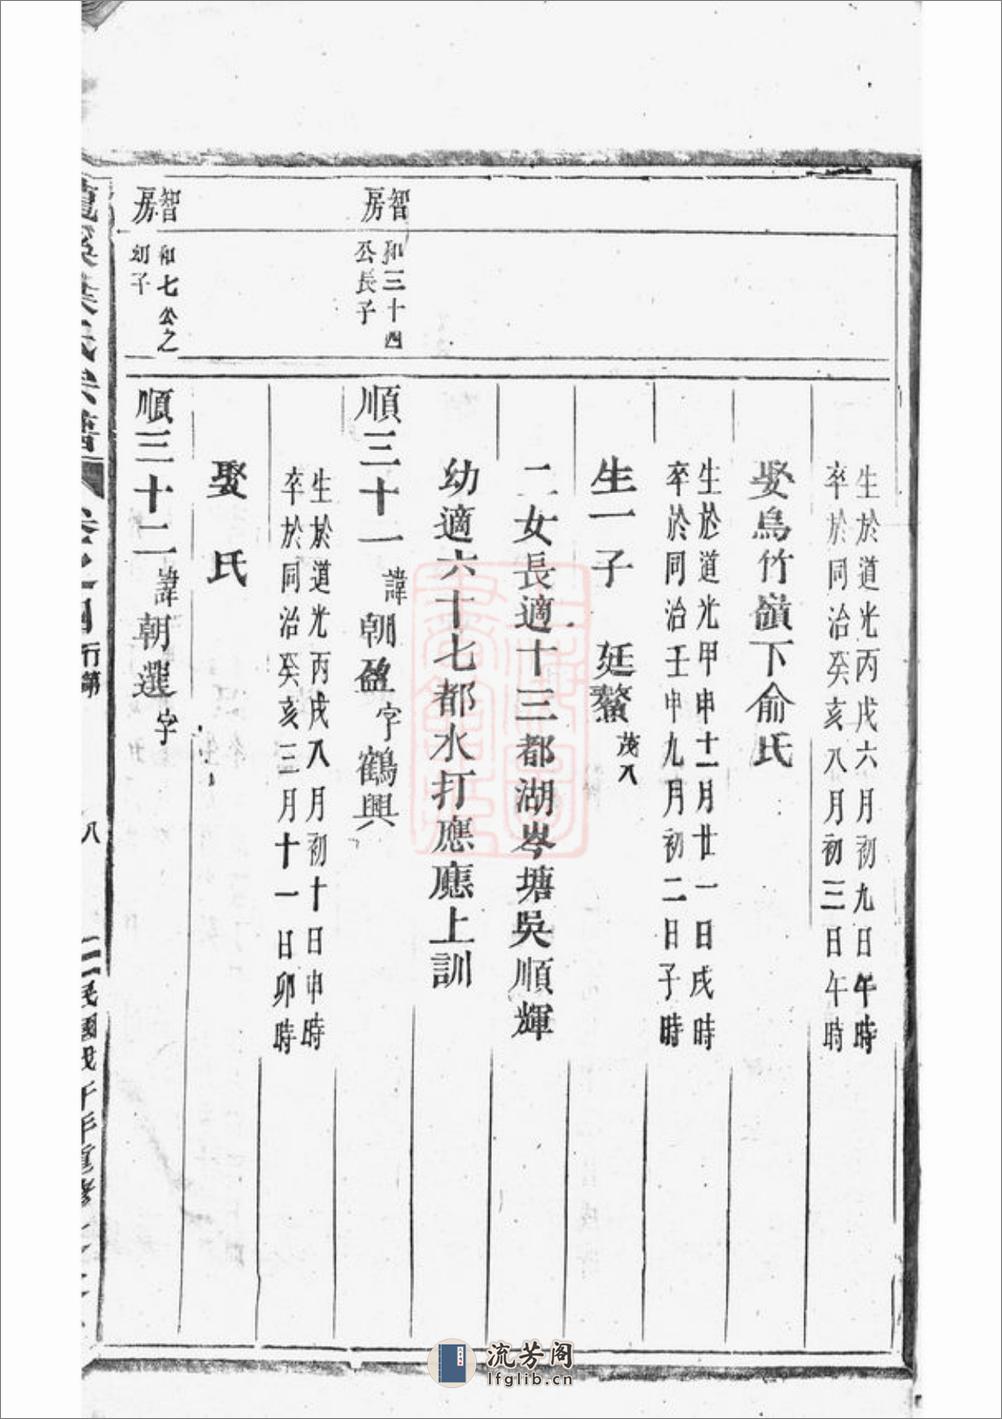 生於道光丙戌六月初九日午時
卒於同治癸亥八月初三日午時
娶烏竹嶺下俞氏
生於道光甲申十一月廿一日戌時
卒於同治壬申九月初二日子時
生一子 廷鰲 茂八
二女長適十三都湖岑塘吳順輝
幼適六十七都水打應應上訓
智房
和三十四
公長子
順三十一 諱朝盈字鶴興
生於道光丙戌八月初十日申時
卒於同治癸亥三月十一日卯時
娶 氏
智房
和七公之
幼子
順三十二 諱朝選字
溪 氏宗譜 卷之 行第
八
民國戊午年重修
流芳阁
lfglib.cn